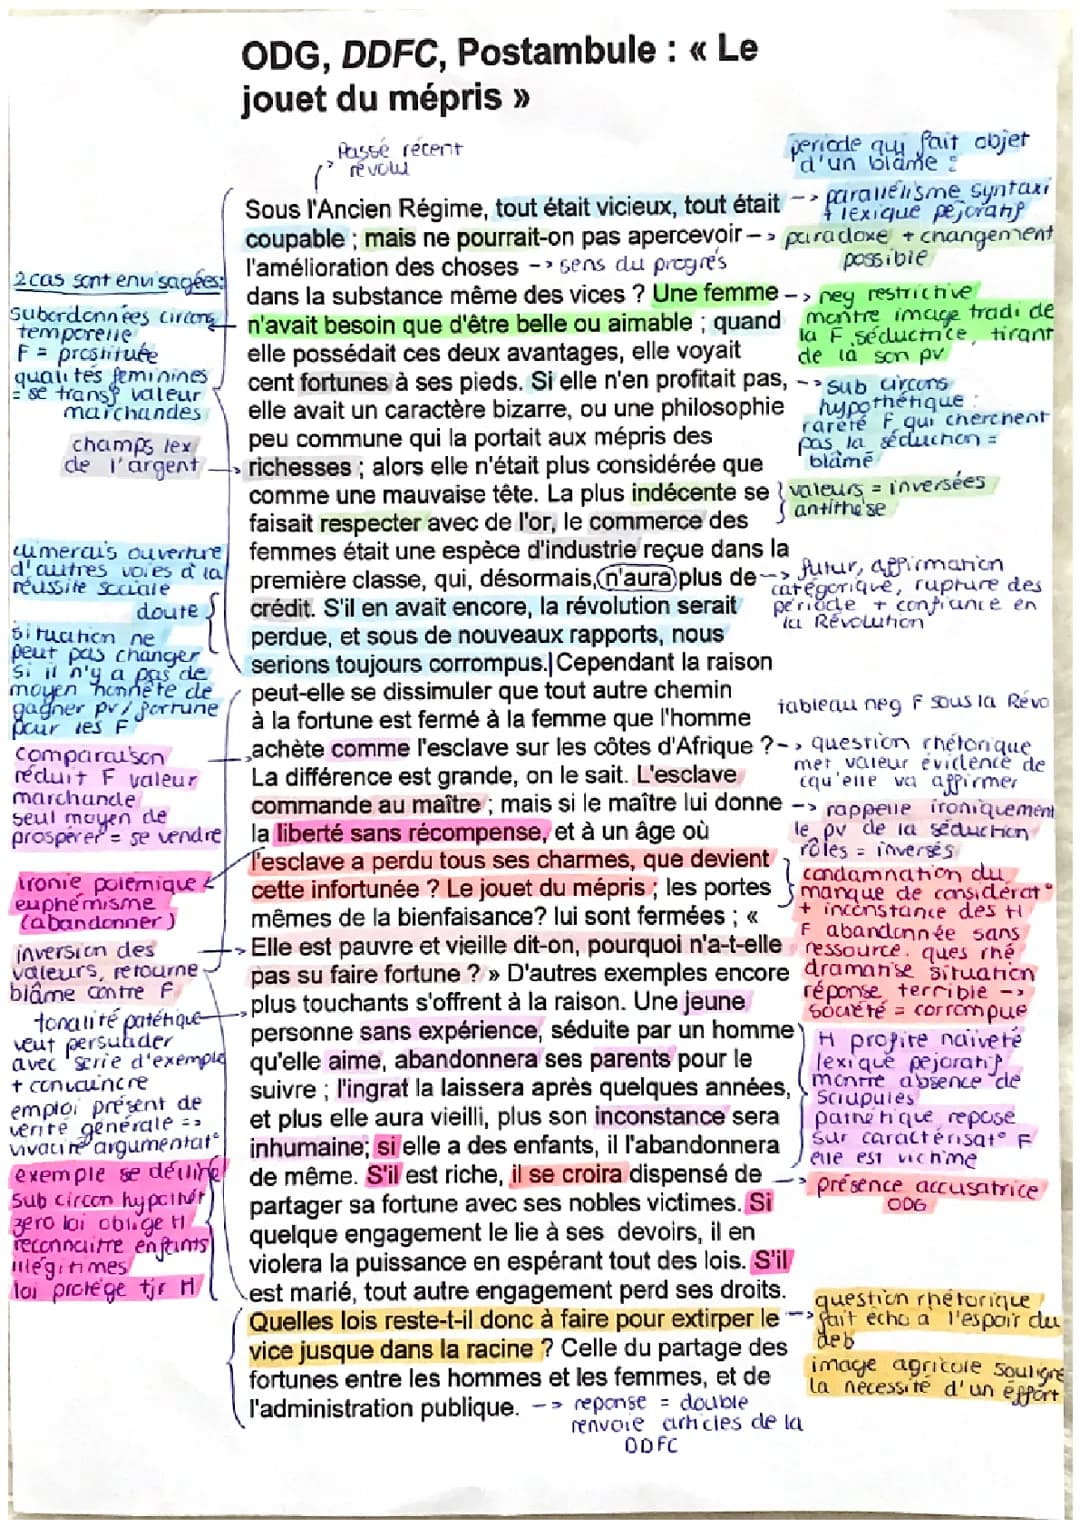 ODG, DDFC, Postambule : « Le
jouet du mépris »
Passé récent
révolu
Sous l'Ancien Régime, tout était vicieux, tout était
coupable ; mais ne pourrait-on pas apercevoir
l'amélioration des choses -> sens du progrès
dans la substance même des vices ? Une femme
n'avait besoin que d'être belle ou aimable ; quand
elle possédait ces deux avantages, elle voyait
cent fortunes à ses pieds. Si elle n'en profitait pas,
elle avait un caractère bizarre, ou une philosophie
peu commune qui la portait aux mépris des
richesses ; alors elle n'était plus considérée que
comme une mauvaise tête. La plus indécente se
faisait respecter avec de l'or, le commerce des
femmes était une espèce d'industrie reçue dans la
première classe, qui, désormais, n'aura plus de
crédit. S'il en avait encore, la révolution serait
perdue, et sous de nouveaux rapports, nous
serions toujours corrompus.| Cependant la raison
peut-elle se dissimuler que tout autre chemin
à la fortune est fermé à la femme que l'homme
achète comme l'esclave sur les côtes d'Afrique ?
La différence est grande, on le sait. L'esclave
commande au maître ; mais si le maître lui donne
la liberté sans récompense, et à un âge où
l'esclave a perdu tous ses charmes, que devient
cette infortunée ? Le jouet du mépris ; les portes
mêmes de la bienfaisance? lui sont fermées ; «
Elle est pauvre et vieille dit-on, pourquoi n'a-t-elle
pas su faire fortune ? » D'autres exemples encore
plus touchants s'offrent à la raison. Une jeune
personne sans expérience, séduite par un homme
qu'elle aime, abandonnera ses parents pour le
suivre ; l'ingrat la laissera après quelques années,
et plus elle aura vieilli, plus son inconstance sera
inhumaine; si elle a des enfants, il l'abandonnera
de même. S'il est riche, il se croira dispensé de
partager sa fortune avec ses nobles victimes. Si
quelque engagement le lie à ses devoirs, il en
violera la puissance en espérant tout des lois. S'il
est marié, tout autre engagement perd ses droits.
Quelles lois reste-t-il donc à faire pour extirper le
vice jusque dans la racine ? Celle du partage des
fortunes entre les hommes et les femmes, et de
l'administration publique. -> reponse = double
renvoie articles de la
DDFC
2 cas sont envisagées:
subordonnées circons
temporelle
F = prostituée
qualités féminines
= se transf valeur
marchandes
champs lex
de l'argent
ouverture
d'autres voies à la
réussite sociale
doute
situation ne
peut pas changer
si il n'y a pas de
moyen honnête de
gagner pv / fortune
pour les F
comparaison
réduit F valeur
marchande
seul moyen de
prospérer = se vendre
ironie polémique
euphémisme
(abandonner)
inversion des
valeurs, retourne
blâme contre F
tonalité patétique
veut persuader
avec serie d'exemple
+ convaincre
emploi présent de
vérité générale =>
vivacité argumentat°
exemple se décline
sub circon hypothét
zéro loi oblige H
reconnaitre enfants
illégitimes
loi protège tjr H
periode qui fait objet
d'un blâme :
-> parallélisme syntaxi
+ lexique péjoratif
-> paradoxe + changement
possible
-> neg restrictive
montre image tradi de
la F séductrice, tirant
de là son pv
-> sub circons
hypothétique :
rareté F qui cherchent
pas la séduction =
blâmé
valeurs = inversées
antithèse
-> futur, affirmation
catégorique, rupture des
période + confiance en
la Révolution
tableau neg F sous la Révo
-> question rhétorique
met valeur évidence de
cqu'elle va affirmer
-> rappelle ironiquement
le pv de la séduction
rôles = inversés
condamnation du
manque de considérat°
+ inconstance des H
F abandonnée sans
ressource. ques rhé
dramatise situation
réponse terrible ->
société = corrompue
H profite naïveté
lexique péjoratif
montre absence de
scrupules
pathétique repose
sur caractérisat° F
elle est victime
-> présence accusatrice
ODG
question rhétorique
-> fait écho à l'espoir du
deb
image agricole souligne
la nécessité d'un effort